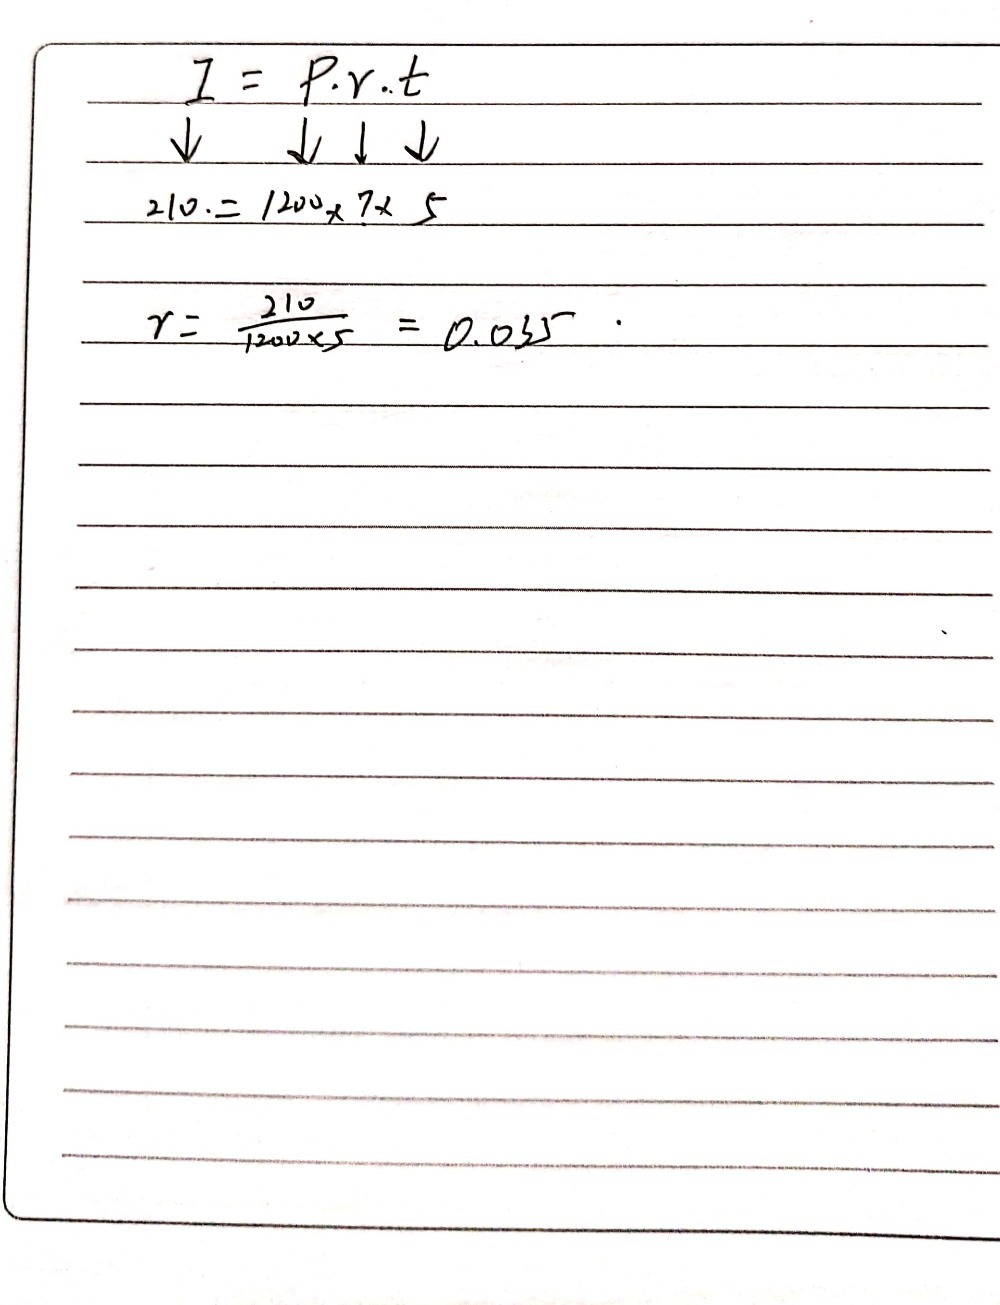 I = P.r.t
↓ ↓ ↓ ↓
210.= 1200 x ? x 5
r = 210 / 1200 x 5 = 0.035 .